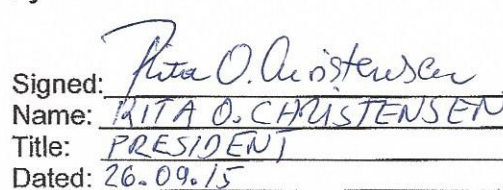 Signed: Rita O. Christensen
Name: RITA O. CHRISTENSEN
Title: PRESIDENT
Dated: 26.09.15